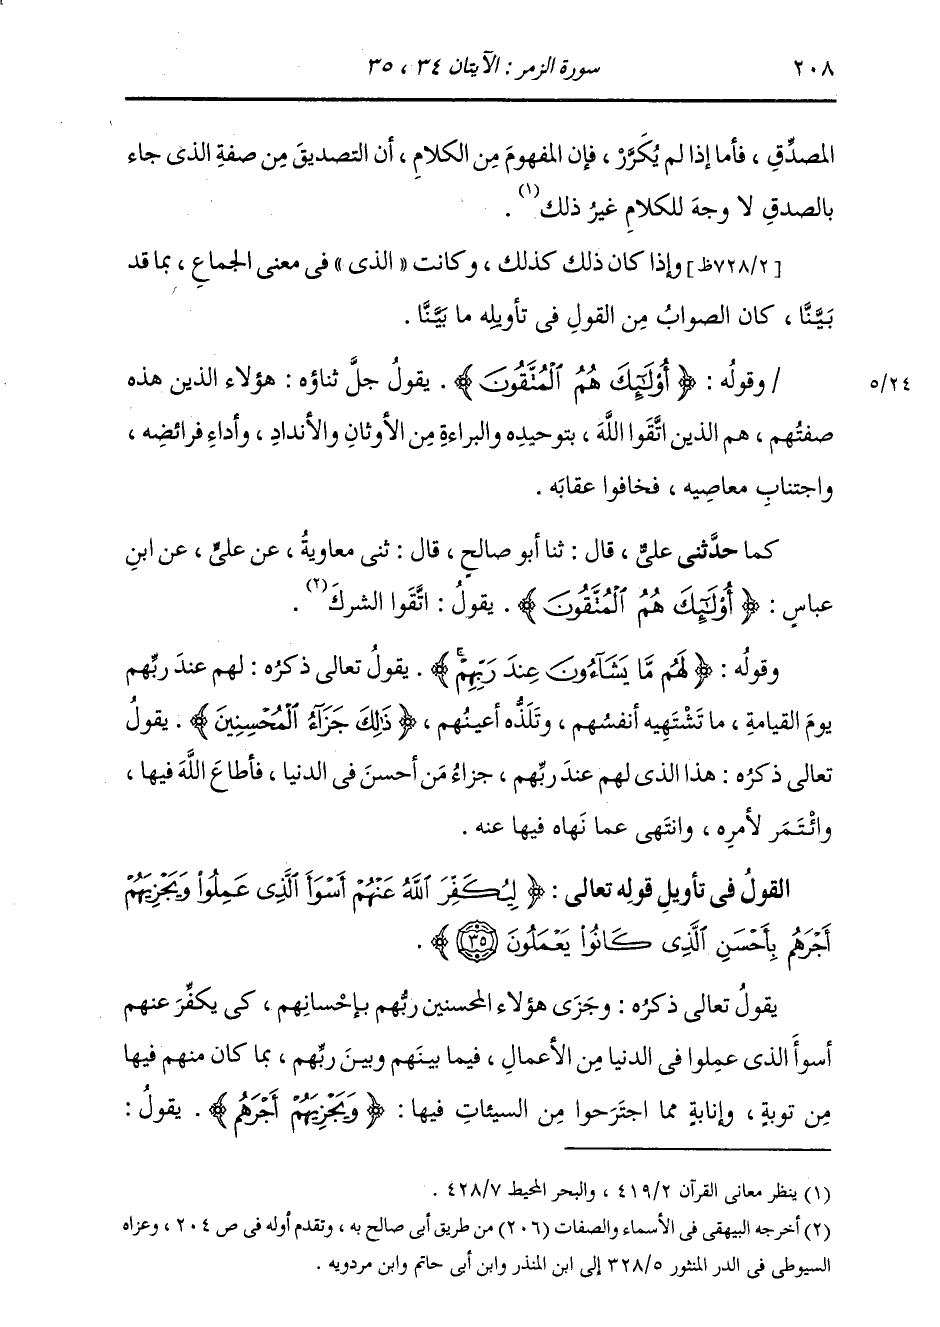 ٢٠٨ سورة الزمر : الآيتان ٣٤ ، ٣٥
المصدِّقِ ، فأما إذا لم يُكَرَّرْ ، فإن المفهومَ مِن الكلامِ ، أن التصديقَ مِن صفةِ الذى جاء
بالصدقِ لا وجهَ للكلامِ غيرُ ذلك(١) .
[٧٢٨/٢ظ] وإذا كان ذلك كذلك ، وكانت « الذى » فى معنى الجماعِ ، بما قد
بَيَّنَّا ، كان الصوابُ مِن القولِ فى تأويلِه ما بَيَّنَّا .
٥/٢٤ / وقولُه : ﴿ أُوْلَٰٓئِكَ هُمُ ٱلْمُتَّقُونَ ﴾ . يقولُ جلَّ ثناؤه : هؤلاء الذين هذه
صفتُهم ، هم الذين اتَّقَوا اللَّهَ ، بتوحيدِه والبراءةِ مِن الأوثانِ والأندادِ ، وأداءِ فرائضِه ،
واجتنابِ معاصِيه ، فخافوا عقابَه .
كما حدَّثنى علىٌّ ، قال : ثنا أبو صالحٍ ، قال : ثنى معاويةُ ، عن علىٍّ ، عن ابنِ
عباسٍ : ﴿ أُوْلَٰٓئِكَ هُمُ ٱلْمُتَّقُونَ ﴾ . يقولُ : اتَّقَوا الشركَ(٢) .
وقولُه : ﴿ لَهُم مَّا يَشَآءُونَ عِندَ رَبِّهِمْۚ ﴾ . يقولُ تعالى ذكرُه : لهم عندَ ربِّهم
يومَ القيامةِ ، ما تَشْتَهِيه أنفسُهم ، وتَلَذُّه أعينُهم ، ﴿ ذَٰلِكَ جَزَآءُ ٱلْمُحْسِنِينَ ﴾ . يقولُ
تعالى ذكرُه : هذا الذى لهم عندَ ربِّهم ، جزاءُ مَن أحسنَ فى الدنيا ، فأطاعَ اللَّهَ فيها ،
وائْتَمَر لأمرِه ، وانتَهى عما نَهاه فيها عنه .
القولُ فى تأويلِ قولِه تعالى : ﴿ لِيُكَفِّرَ ٱللَّهُ عَنْهُمْ أَسْوَأَ ٱلَّذِى عَمِلُواْ وَيَجْزِيَهُمْ
أَجْرَهُم بِأَحْسَنِ ٱلَّذِى كَانُواْ يَعْمَلُونَ ٣٥ ﴾ .
يقولُ تعالى ذكرُه : وجَزَى هؤلاء المحسنين ربُّهم بإحْسانِهم ، كى يكفِّرَ عنهم
أسوأَ الذى عمِلوا فى الدنيا مِن الأعمالِ ، فيما بينَهم وبينَ ربِّهم ، بما كان منهم فيها
مِن توبةٍ ، وإنابةٍ مما اجترَحوا مِن السيئاتِ فيها : ﴿ وَيَجْزِيَهُمْ أَجْرَهُم ﴾ . يقولُ :
(١) ينظر معانى القرآن ٤١٩/٢ ، والبحر المحيط ٤٢٨/٧ .
(٢) أخرجه البيهقى فى الأسماء والصفات (٢٠٦) من طريق أبى صالح به ، وتقدم أوله فى ص ٢٠٤ ، وعزاه
السيوطى فى الدر المنثور ٣٢٨/٥ إلى ابن المنذر وابن أبى حاتم وابن مردويه .